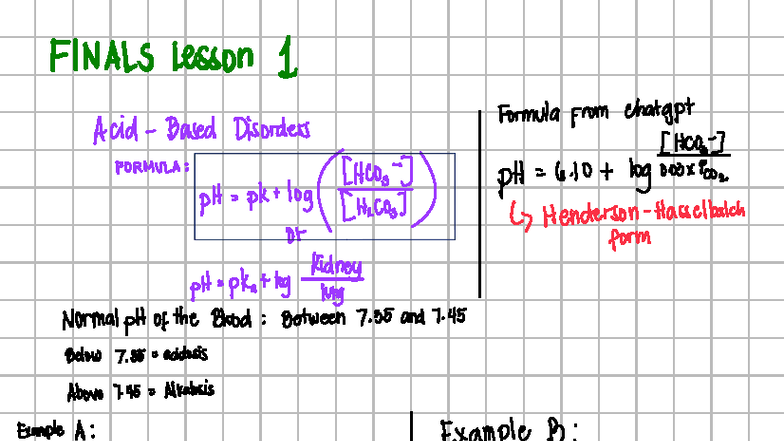 FINALS Lesson 1
Acid - Based Disorders
FORMULA:
pH = pk + log ([HCO₃⁻] / [H₂CO₃])
or
pH = pKₐ + log Kidney / lung
Formula from chatgpt
pH = 6.10 + log [HCO₃⁻] / 0.03 x PCO₂
↳ Henderson-Hasselbalch
form
Normal pH of the Blood : Between 7.35 and 7.45
Below 7.35 = acidosis
Above 7.45 = Alkalosis
Example A:
Example B: